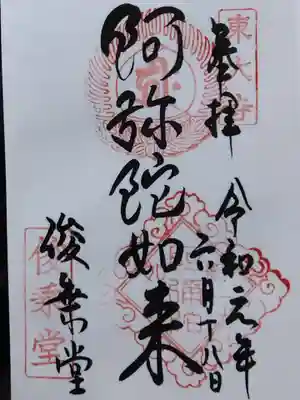 奉拝
東大寺
令和元年
六月十八日
阿弥陀如来
俊乗堂
俊乗堂